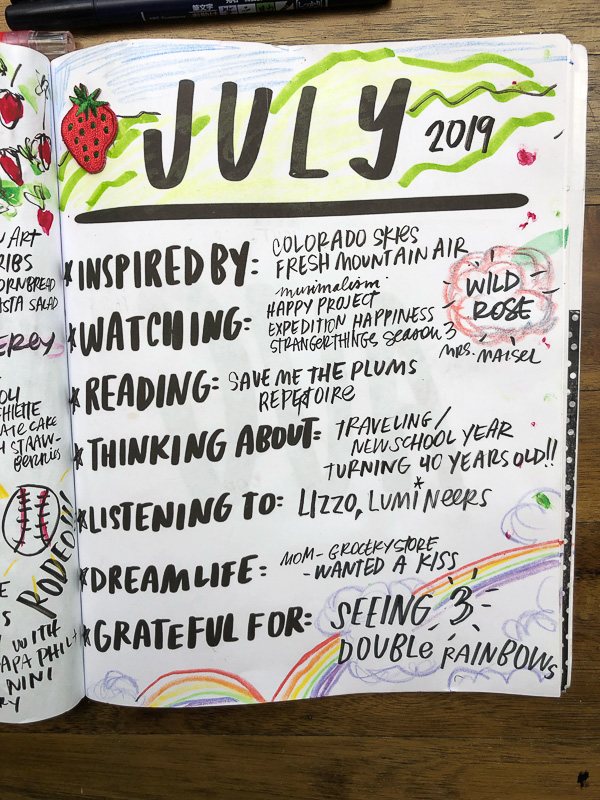 JULY
2019
*INSPIRED BY: COLORADO SKIES
FRESH MOUNTAIN AIR
WILD
ROSE
*WATCHING: minimalism
HAPPY PROJECT
EXPEDITION HAPPINESS
STRANGER THINGS SEASON 3
MRS. MAISEL
*READING: SAVE ME THE PLUMS
REPERTOIRE
*THINKING ABOUT: TRAVELING/
NEW SCHOOL YEAR
TURNING 40 YEARS OLD!!
*LISTENING TO: LIZZO, LUMINEERS
*DREAM LIFE: MOM- GROCERY STORE
-WANTED A KISS
*GRATEFUL FOR: SEEING 3
DOUBLE RAINBOWS
ART
RIBS
CORNBREAD
PASTA SALAD
CAKE
STRAW-
berries
RODEO!!!
WITH
PAPA PHIL +
NINI